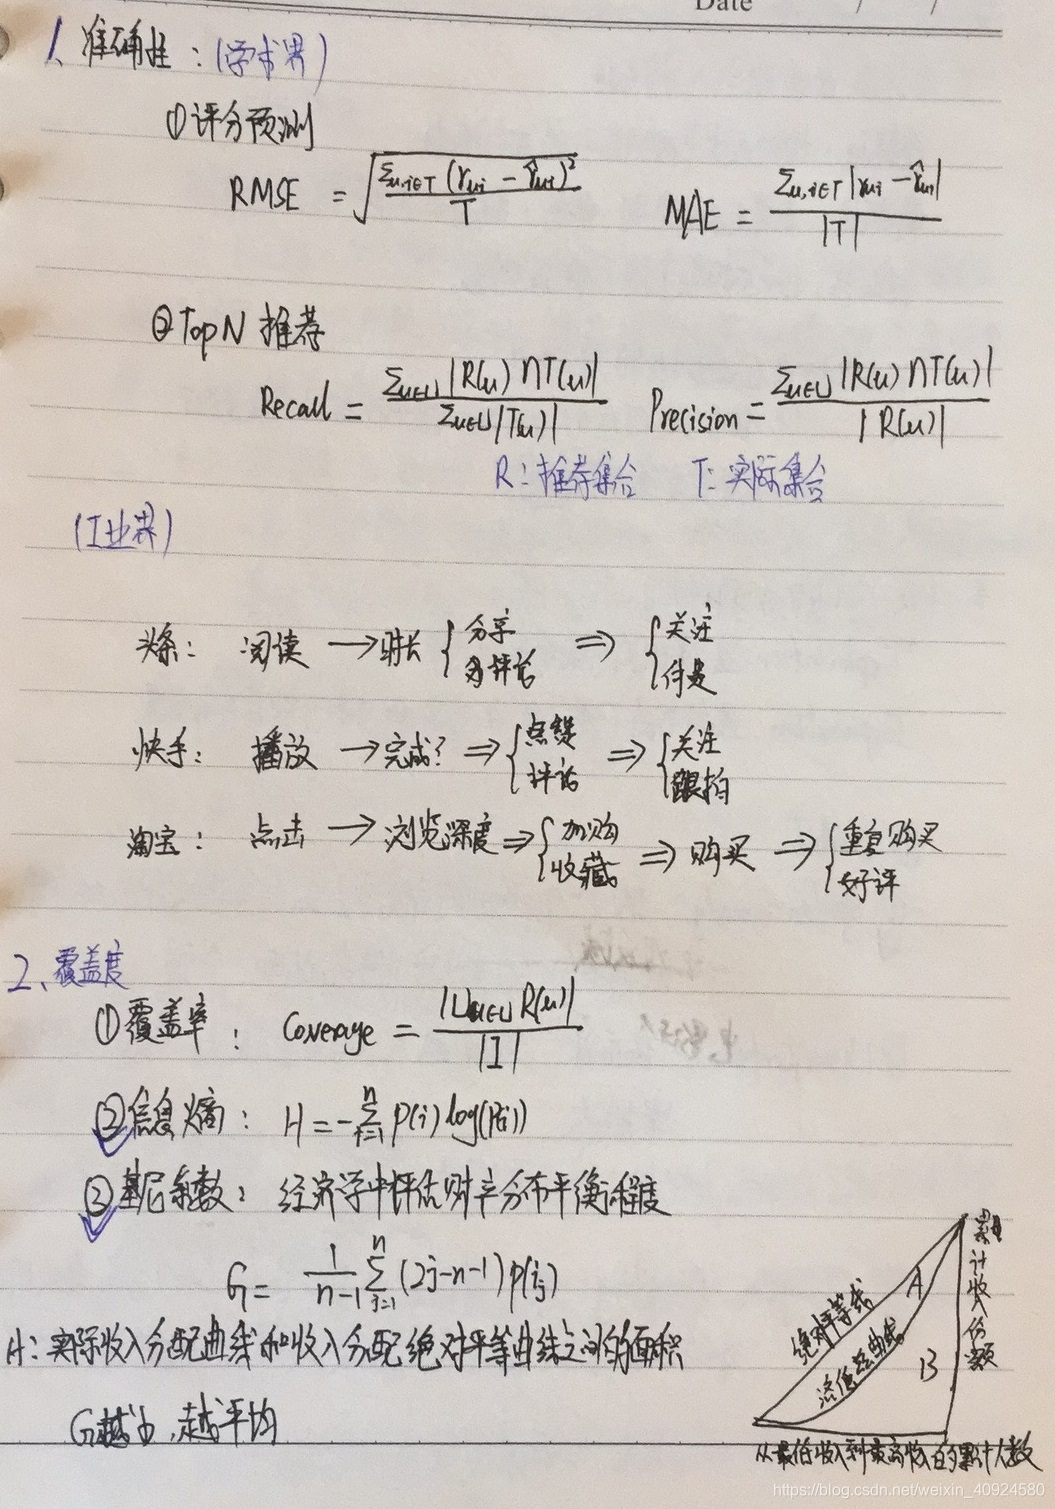 Date / /
1、准确性：（学术界）
①评分预测
RMSE = √(Σu,i∈T (rui − r̂ui)² / T)  MAE = Σu,i∈T |rui − r̂ui| / |T|
②TopN 推荐
Recall = Σu∈U |R(u)∩T(u)| / Σu∈U |T(u)|  Precision = Σu∈U |R(u)∩T(u)| / |R(u)|
R：推荐集合 T：实际集合
（工业界）
头条： 阅读 → 时长 { 分享 评论 ⇒ { 关注
快手： 播放 → 完成? ⇒ { 点赞 评论 ⇒ { 关注 跟拍
淘宝： 点击 → 浏览深度 ⇒ { 加购 收藏 ⇒ 购买 ⇒ { 重复购买 好评
2、覆盖度
①覆盖率： Coverage = |∪u∈U R(u)| / |I|
②信息熵： H = −Σ(i=1..n) p(i) log(p(i))
③基尼系数： 经济学中评估财产分布平衡程度
G = 1/(n−1) Σ(j=1..n) (2j−n−1) p(ij)
A：实际收入分配曲线和收入分配绝对平等曲线之间的面积
G越小，越平均
绝对平等线
洛伦兹曲线
A
B
累计收入份额
从最低收入到最高收入的累计人数
https://blog.csdn.net/weixin_40924580